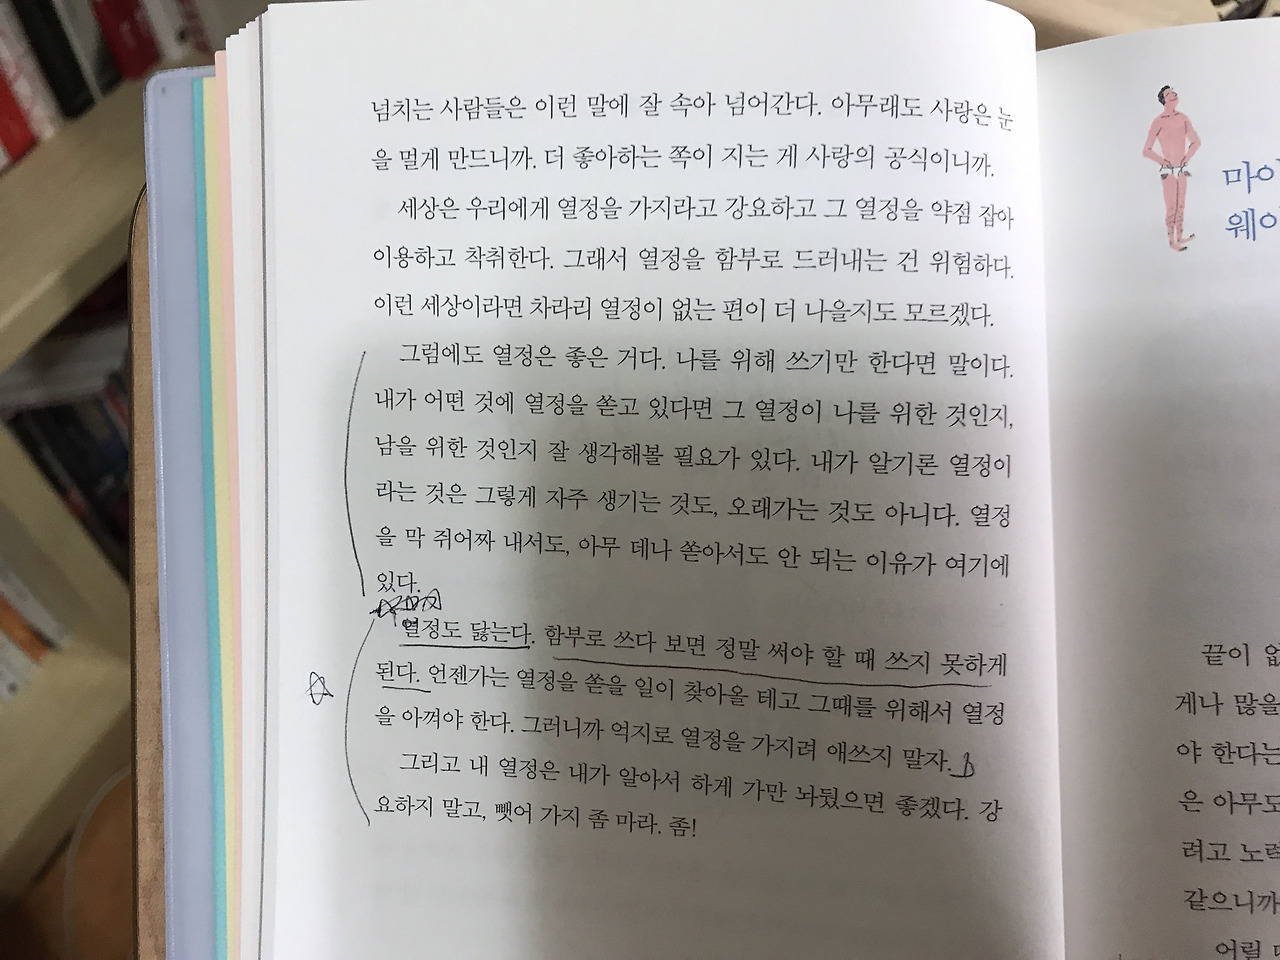 넘치는 사람들은 이런 말에 잘 속아 넘어간다. 아무래도 사랑은 눈
을 멀게 만드니까. 더 좋아하는 쪽이 지는 게 사랑의 공식이니까.
세상은 우리에게 열정을 가지라고 강요하고 그 열정을 약점 잡아
이용하고 착취한다. 그래서 열정을 함부로 드러내는 건 위험하다.
이런 세상이라면 차라리 열정이 없는 편이 더 나을지도 모르겠다.
그럼에도 열정은 좋은 거다. 나를 위해 쓰기만 한다면 말이다.
내가 어떤 것에 열정을 쏟고 있다면 그 열정이 나를 위한 것인지,
남을 위한 것인지 잘 생각해볼 필요가 있다. 내가 알기론 열정이
라는 것은 그렇게 자주 생기는 것도, 오래가는 것도 아니다. 열정
을 막 쥐어짜 내서도, 아무 데나 쏟아서도 안 되는 이유가 여기에
있다.
열정도 닳는다. 함부로 쓰다 보면 정말 써야 할 때 쓰지 못하게
된다. 언젠가는 열정을 쏟을 일이 찾아올 테고 그때를 위해서 열정
을 아껴야 한다. 그러니까 억지로 열정을 가지려 애쓰지 말자.
그리고 내 열정은 내가 알아서 하게 가만 놔뒀으면 좋겠다. 강
요하지 말고, 뺏어 가지 좀 마라. 좀!
마이
웨이
끝이 없
게나 많을
야 한다는
은 아무도
려고 노력
같으니까
어릴